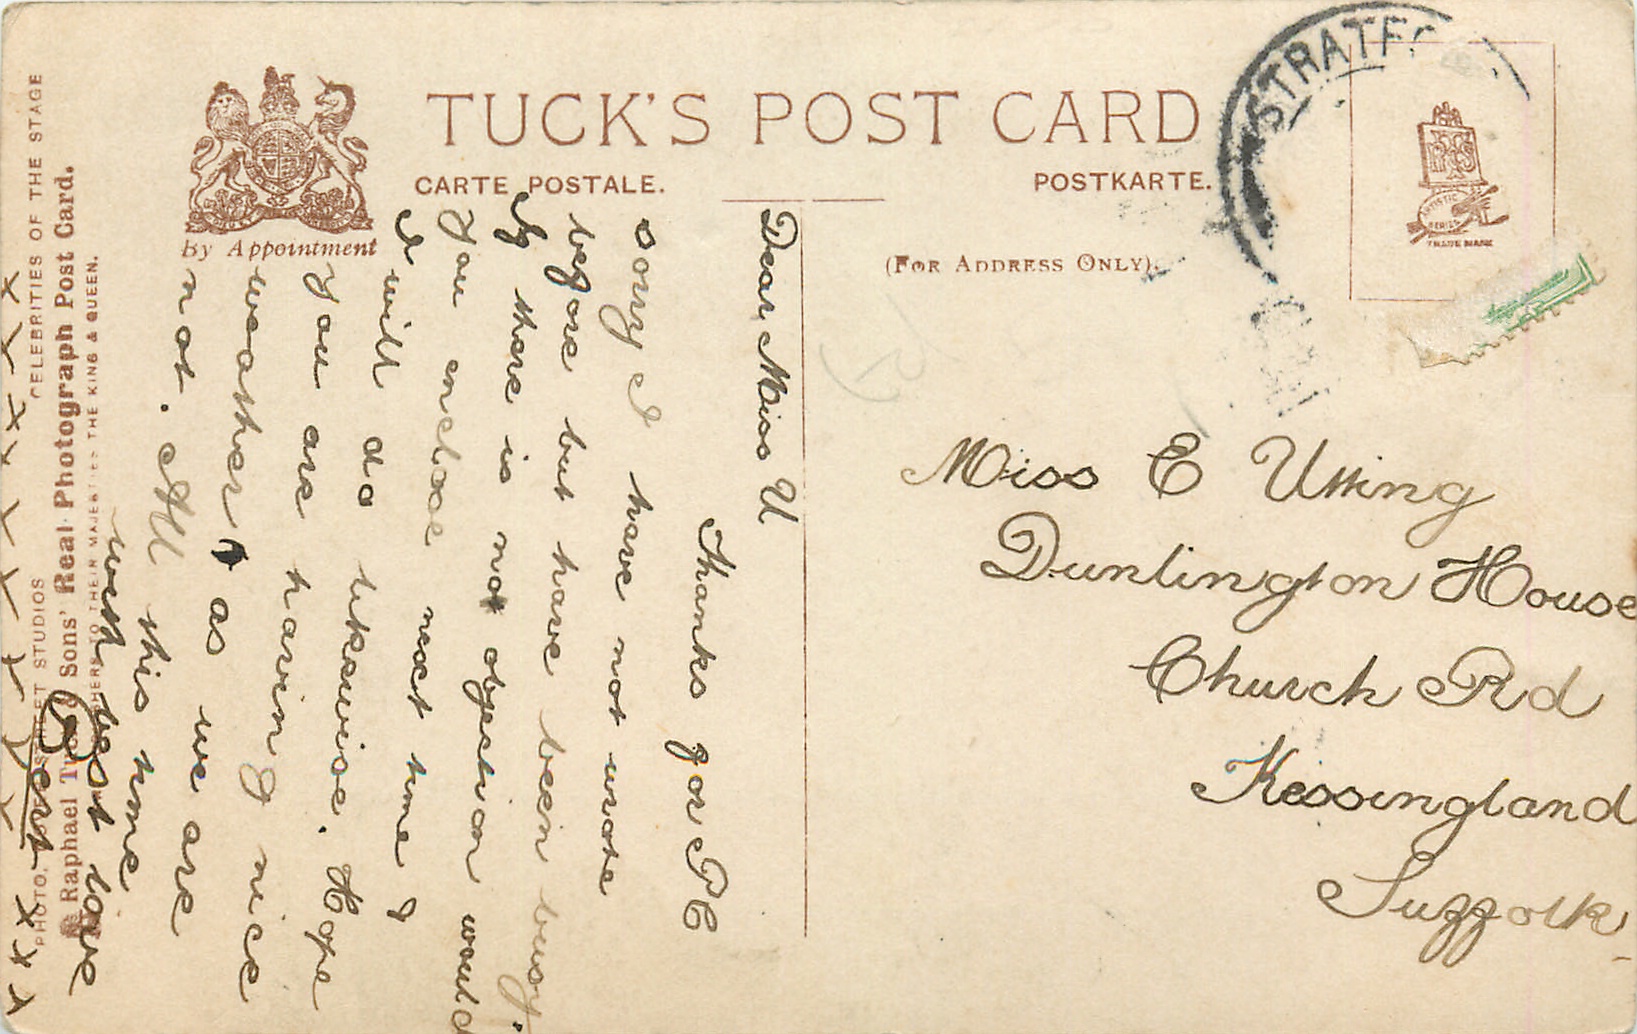 TUCK'S POST CARD
CARTE POSTALE.
POSTKARTE.
By Appointment
(FOR ADDRESS ONLY).
STRATF
ARTISTIC
SERIES
TRADE MARK
Miss E Utting
Dunlington House
Church Rd
Kessingland
Suffolk
Dear Miss U
Thanks for PC
sorry I have not wrote
before but have been busy.
If there is not objection would
you enclose next time &
I will do likewise. Hope
you are having nice
weather, as we are
not. All this time
with best love
Bert
x x x x x x x x x x x x x
CELEBRITIES OF THE STAGE
Raphael Tuck & Sons' Real Photograph Post Card.
TO THEIR MAJESTIES THE KING & QUEEN.
PHOTO. STREET STUDIOS